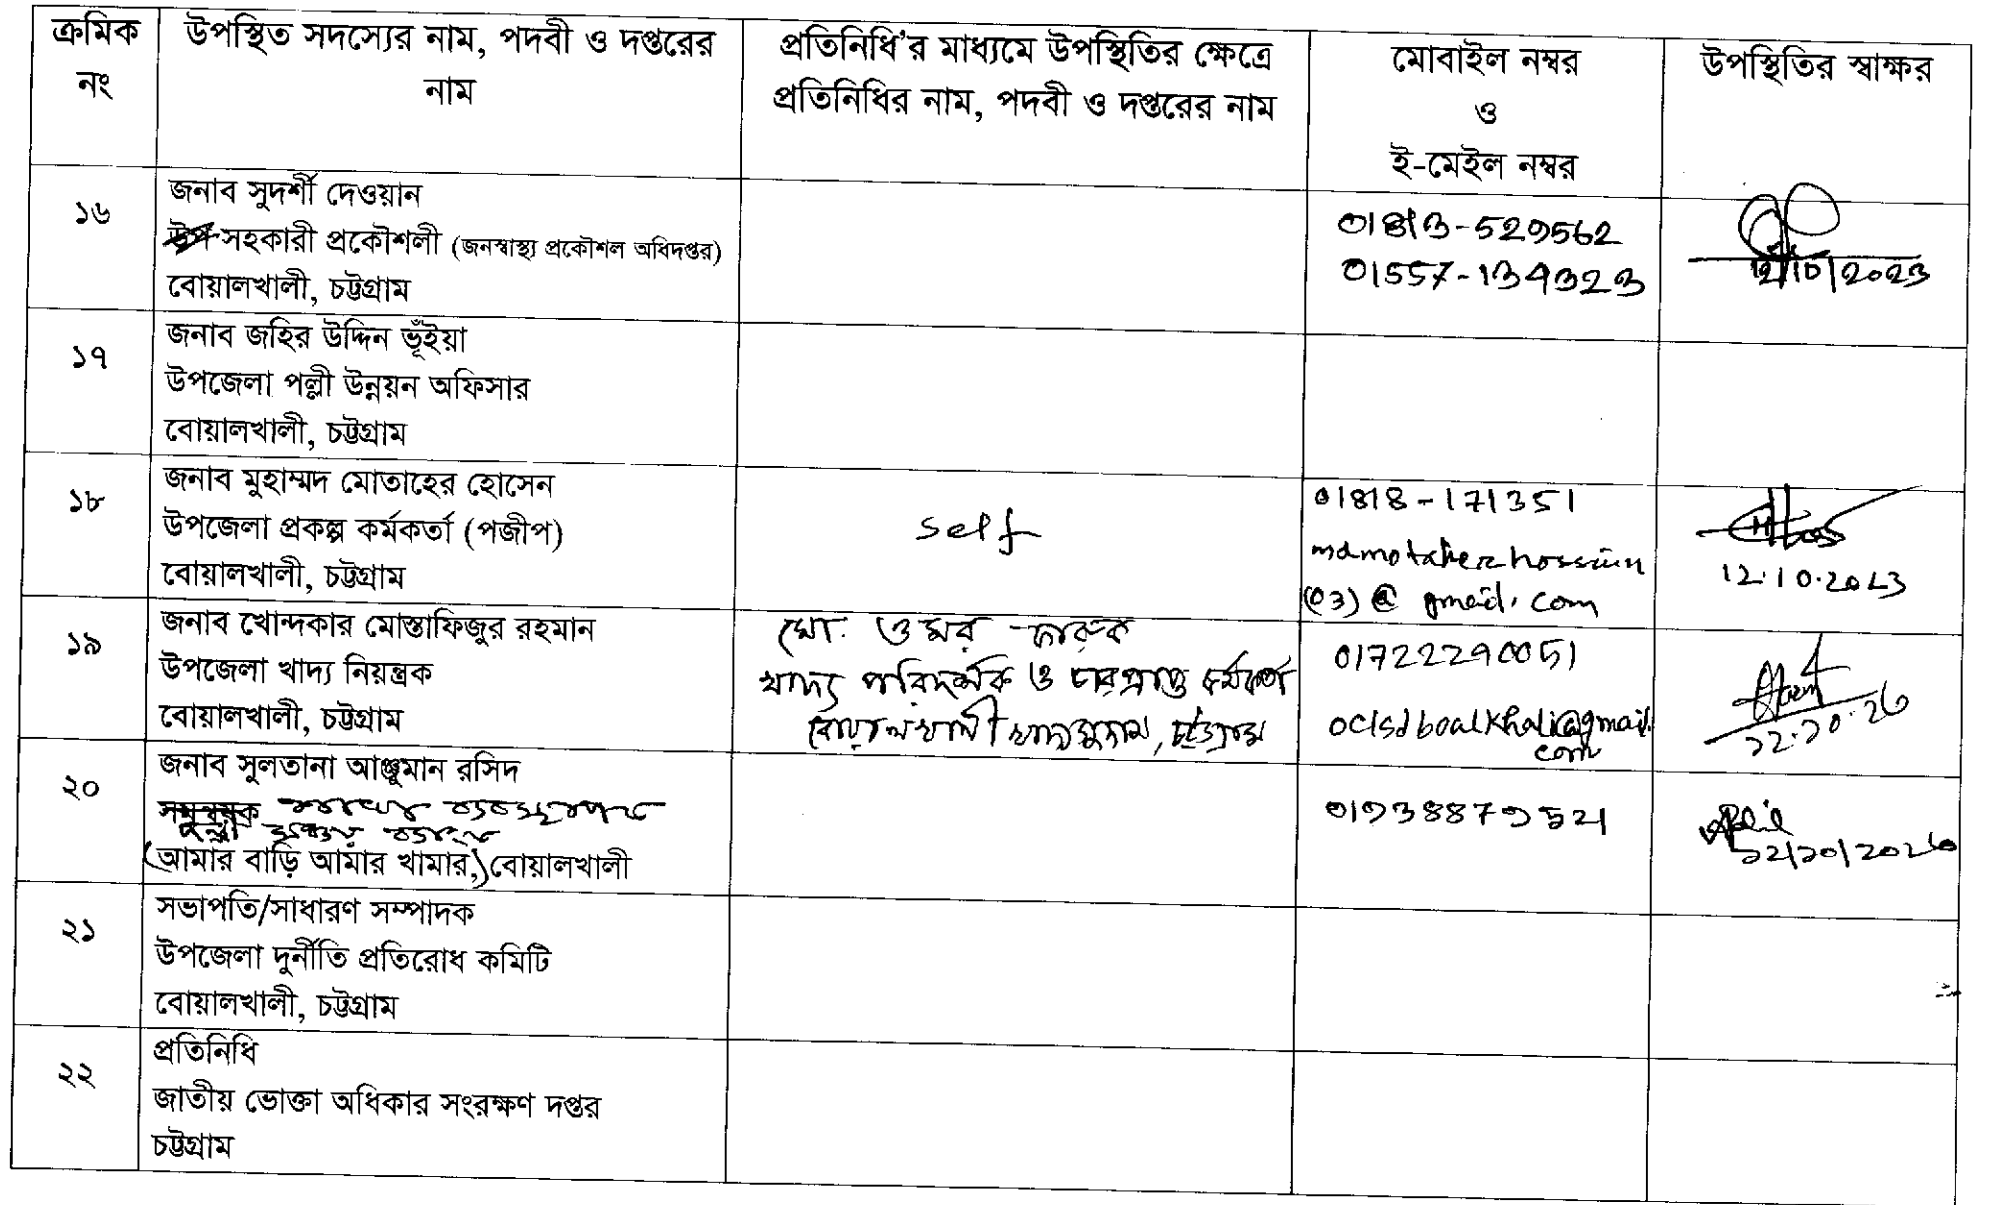 ক্রমিক
নং
উপস্থিত সদস্যের নাম, পদবী ও দপ্তরের
নাম
প্রতিনিধি'র মাধ্যমে উপস্থিতির ক্ষেত্রে
প্রতিনিধির নাম, পদবী ও দপ্তরের নাম
মোবাইল নম্বর
ও
ই-মেইল নম্বর
উপস্থিতির স্বাক্ষর
১৬
জনাব সুদর্শী দেওয়ান
উপ-সহকারী প্রকৌশলী (জনস্বাস্থ্য প্রকৌশল অধিদপ্তর)
বোয়ালখালী, চট্টগ্রাম
01813-529562
01557-134323
12/10/2023
১৭
জনাব জহির উদ্দিন ভূঁইয়া
উপজেলা পল্লী উন্নয়ন অফিসার
বোয়ালখালী, চট্টগ্রাম
১৮
জনাব মুহাম্মদ মোতাহের হোসেন
উপজেলা প্রকল্প কর্মকর্তা (পজীপ)
বোয়ালখালী, চট্টগ্রাম
self
01818-171351
(03)@gmail.com
12.10.2023
১৯
জনাব খোন্দকার মোস্তাফিজুর রহমান
উপজেলা খাদ্য নিয়ন্ত্রক
বোয়ালখালী, চট্টগ্রাম
মো: ওমর ফারুক
খাদ্য পরিদর্শক ও ভারপ্রাপ্ত কর্মকর্তা
বোয়ালখালী খাদ্যগুদাম, চট্টগ্রাম
01722290051
oclsdboalkhali@gmail.
com
১২.১০.২৩
২০
জনাব সুলতানা আঞ্জুমান রসিদ
সমন্বয়ক শাখা ব্যবস্থাপক
পল্লী সঞ্চয় ব্যাংক
(আমার বাড়ি আমার খামার,) বোয়ালখালী
01938879521
১২/১০/২০২৩
২১
সভাপতি/সাধারণ সম্পাদক
উপজেলা দুর্নীতি প্রতিরোধ কমিটি
বোয়ালখালী, চট্টগ্রাম
২২
প্রতিনিধি
জাতীয় ভোক্তা অধিকার সংরক্ষণ দপ্তর
চট্টগ্রাম